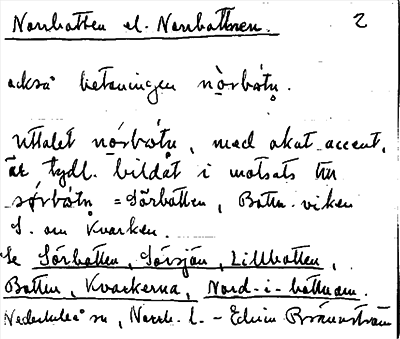 Norrbotten el. Norrbottnen. 2
också betoningen nòrbótṇ.
Uttalet nórbòtṇ, med akut accent,
är tydl. bildat i motsats till
sǿrbòtṇ = Sörbotten, Bottn. viken
S. om Kvarken.
Se Sörbotten, Sörsjön, Lillbotten,
Botten, Kvarkerna, Nord-i-bottnarn.
Nederluleå sn, Norrb. l. – Edvin Brännström